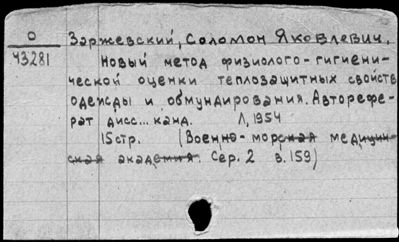 О
43281
Заржевский, Соломон Яковлевич.
Новый метод физиолого-гигиени-
ческой оценки теплозащитных свойств
одежды и обмундирования. Авторефе-
рат дисс... канд. Л, 1954
15стр. (Военно-морская медицин-
ская академия. Сер. 2 в.159)